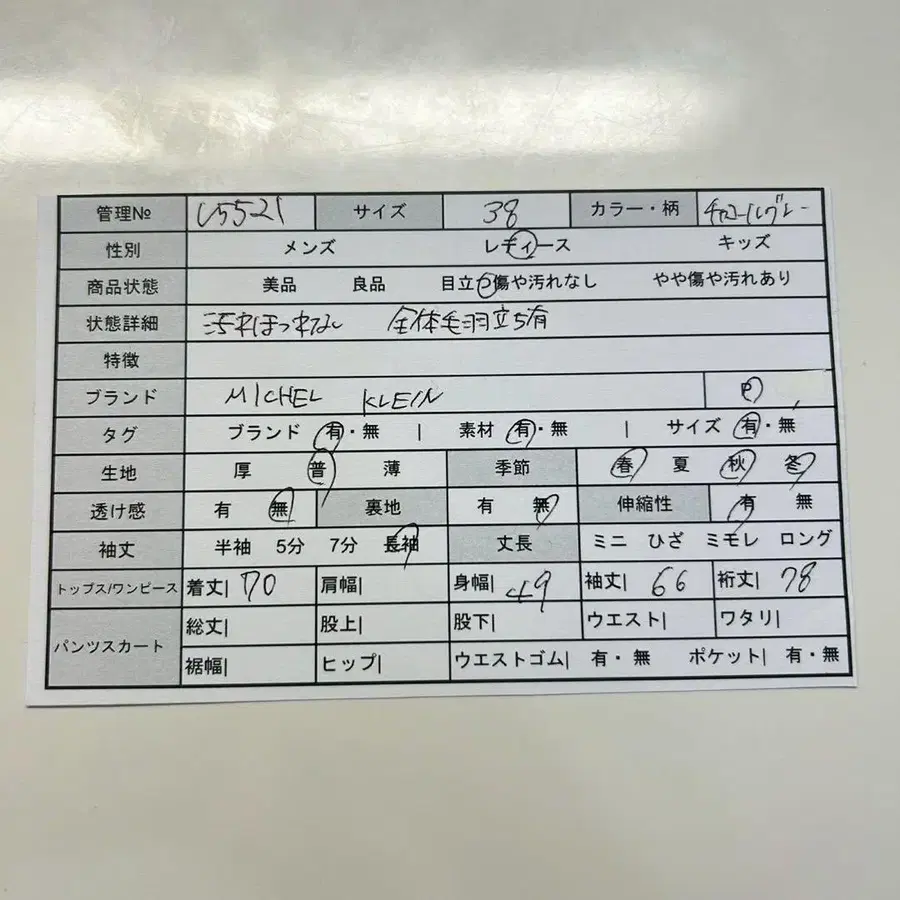 管理№ U5521 サイズ 38 カラー・柄 チャコールグレー
性別 メンズ レディース キッズ
商品状態 美品 良品 目立つ傷や汚れなし やや傷や汚れあり
状態詳細 汚れほつれなし 全体毛羽立ち有
特徴
ブランド MICHEL KLEIN P
タグ ブランド 有・無 | 素材 有・無 | サイズ 有・無
生地 厚 普 薄 季節 春 夏 秋 冬
透け感 有 無 裏地 有 無 伸縮性 有 無
袖丈 半袖 5分 7分 長袖 丈長 ミニ ひざ ミモレ ロング
トップス/ワンピース 着丈| 70 肩幅| 身幅| 49 袖丈| 66 裄丈| 78
パンツスカート 総丈| 股上| 股下| ウエスト| ワタリ|
裾幅| ヒップ| ウエストゴム| 有・無 ポケット| 有・無